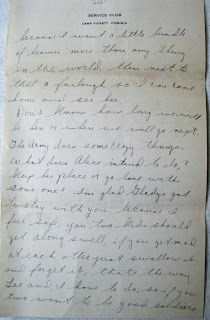 SERVICE CLUB
CAMP PICKETT, VIRGINIA
because I want a little bundle
of heaven more than any thing
in the world, then next to
that a furlough so I can come
home and see her.
Don't know how long we will
be here or where we will go next.
The Army does some crazy things.
What does Alice intend to do,
Keep his place or go live with
some one? I'm glad Gladys got
to stay with you, because I
feel safe, you two kids should
get along swell, if you get mad
at each other just swallow it
and forget it, that's the way
Lee and I have to do, so if you
two want to be good soldiers